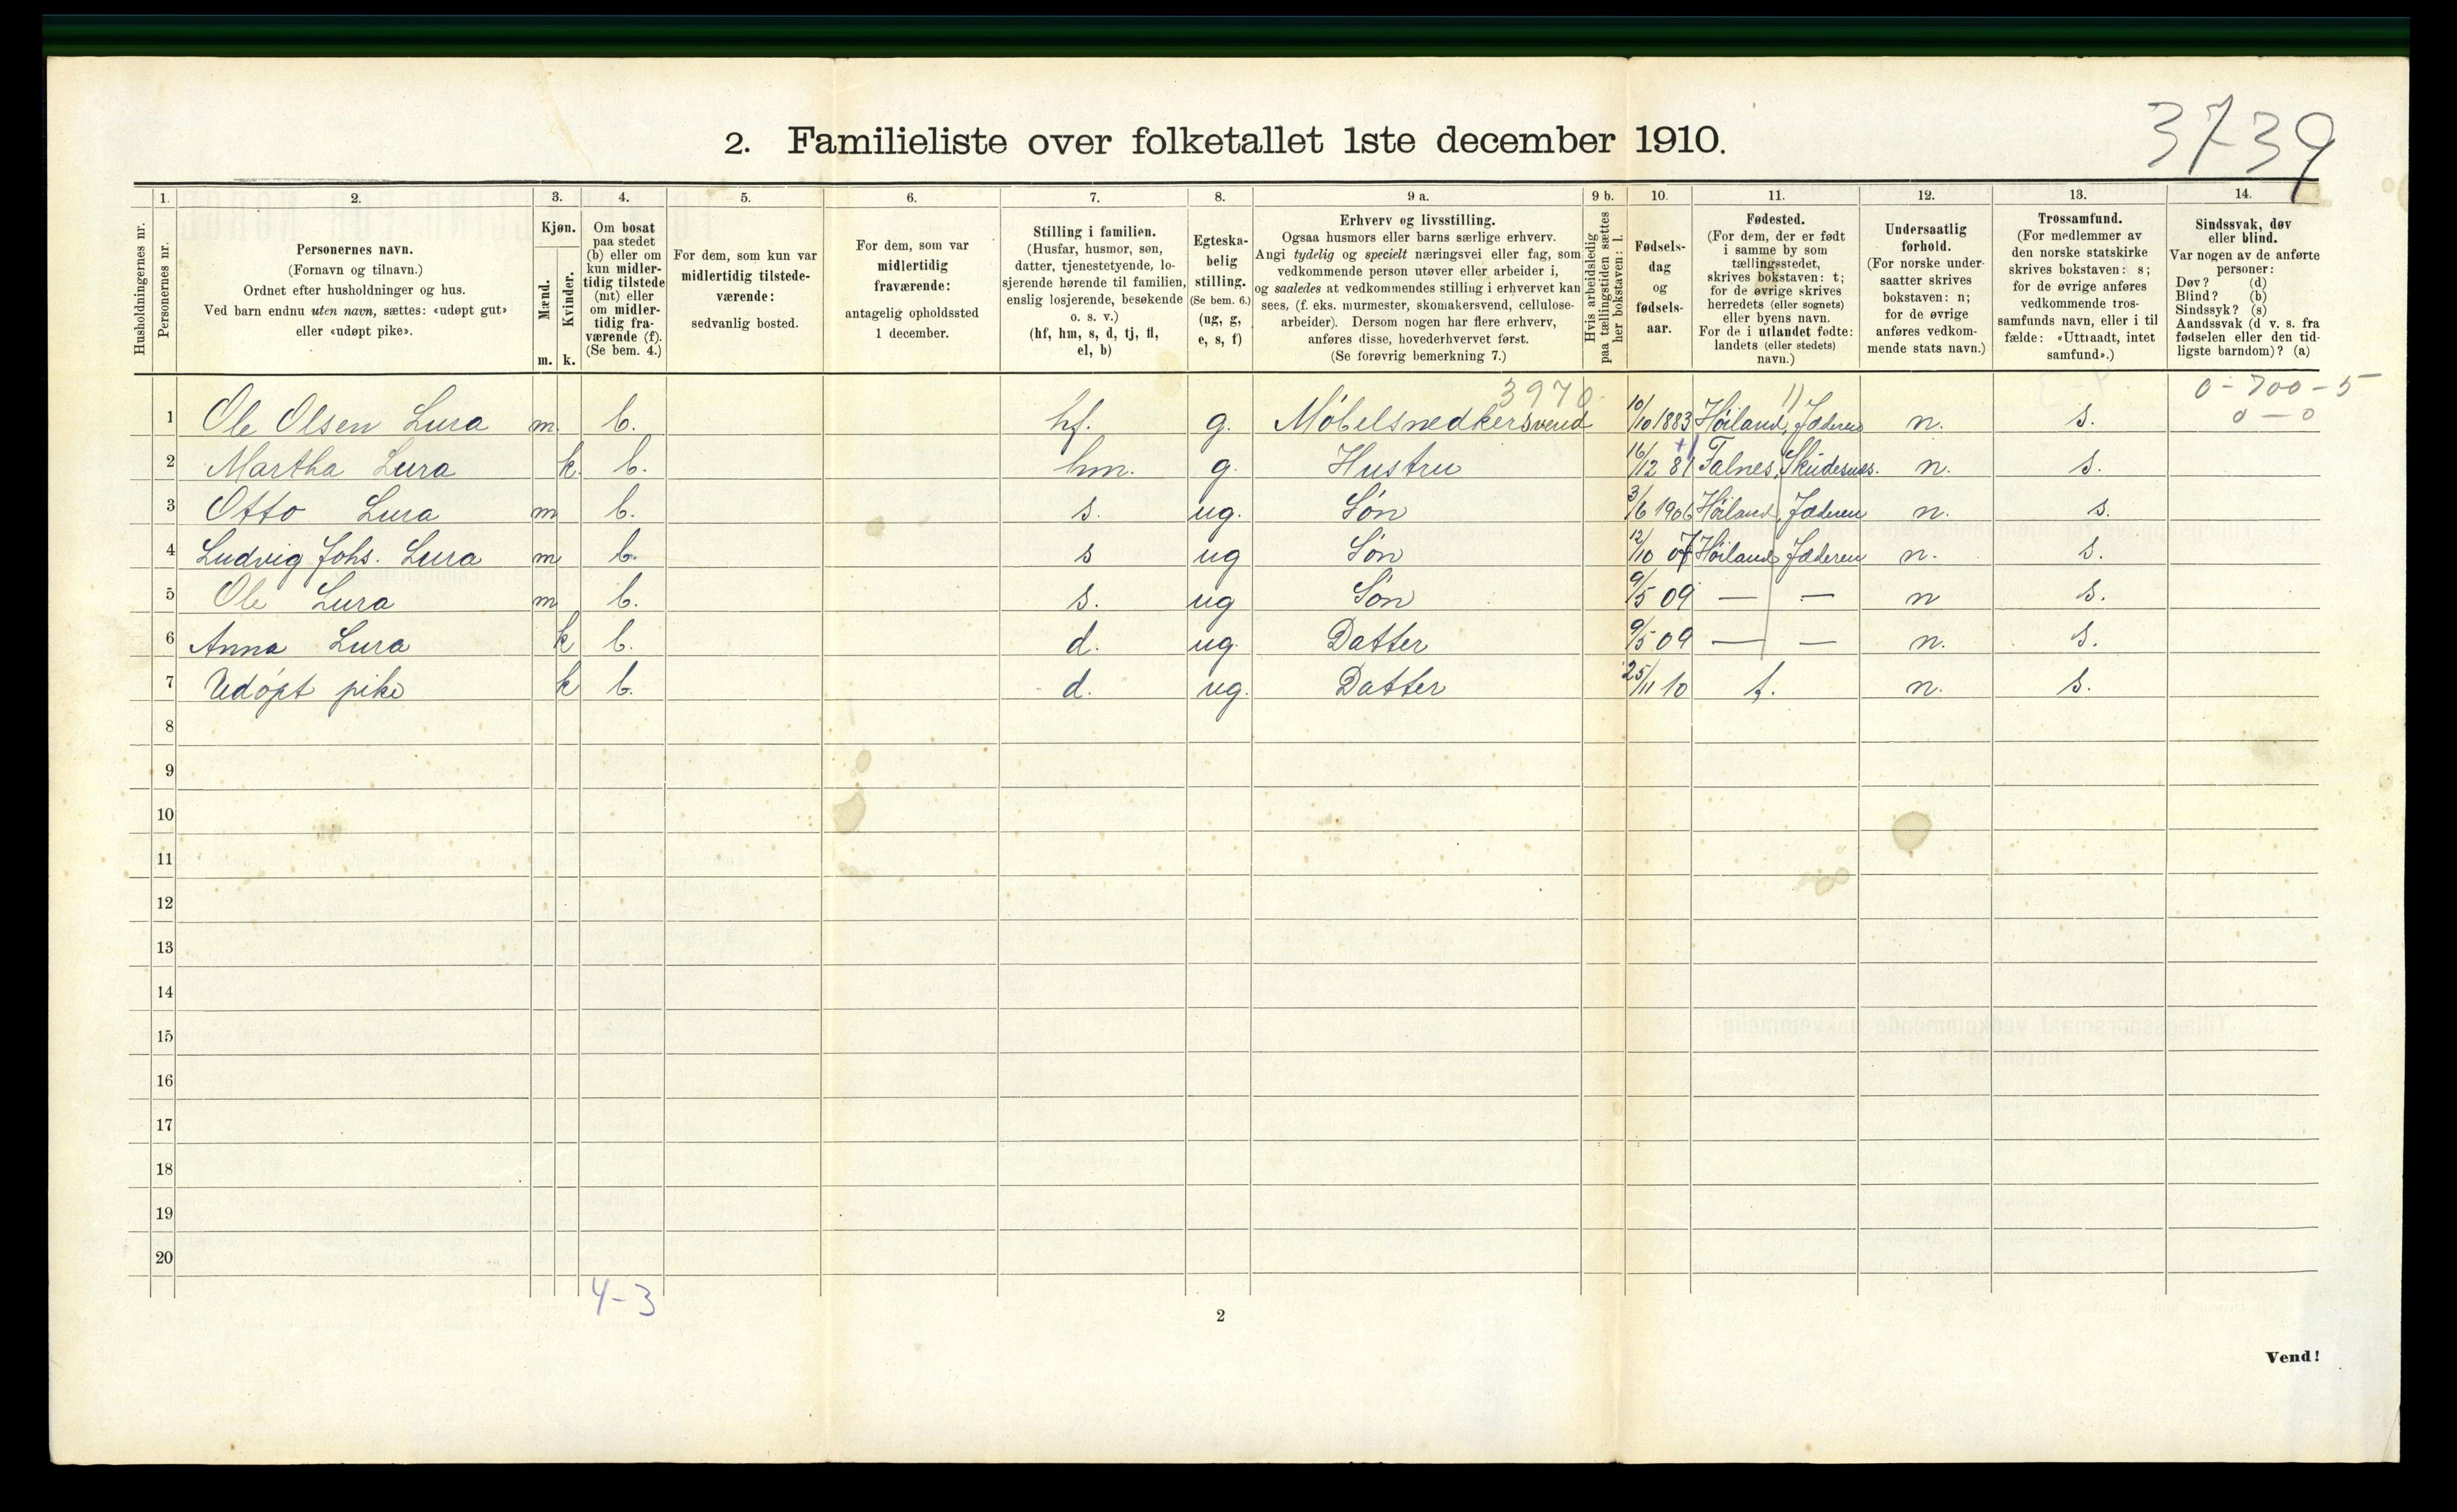 3739
2. Familieliste over folketallet 1ste december 1910.
Husholdningernes nr.
1.
Personernes nr.
2.
Personernes navn.
(Fornavn og tilnavn.)
Ordnet efter husholdninger og hus.
Ved barn endnu uten navn, sættes: «udøpt gut»
eller «udøpt pike».
3.
Kjøn.
Mænd.
Kvinder.
m. k.
4.
Om bosat
paa stedet
(b) eller om
kun midler-
tidig tilstede
(mt) eller
om midler-
tidig fra-
værende (f).
(Se bem. 4.)
5.
For dem, som kun var
midlertidig tilstede-
værende:
sedvanlig bosted.
6.
For dem, som var
midlertidig
fraværende:
antagelig opholdssted
1 december.
7.
Stilling i familien.
(Husfar, husmor, søn,
datter, tjenestetyende, lo-
sjerende hørende til familien,
enslig losjerende, besøkende
o. s. v.)
(hf, hm, s, d, tj, fl,
el, b)
8.
Egteska-
belig
stilling.
(Se bem. 6.)
(ug, g,
e, s, f)
9 a.
Erhverv og livsstilling.
Ogsaa husmors eller barns særlige erhverv.
Angi tydelig og specielt næringsvei eller fag, som
vedkommende person utøver eller arbeider i,
og saaledes at vedkommendes stilling i erhvervet kan
sees, (f. eks. murmester, skomakersvend, cellulose-
arbeider). Dersom nogen har flere erhverv,
anføres disse, hovederhvervet først.
(Se forøvrig bemerkning 7.)
9 b.
Hvis arbeidsledig
paa tællingstiden sættes
her bokstaven: l.
10.
Fødsels-
dag
og
fødsels-
aar.
11.
Fødested.
(For dem, der er født
i samme by som
tællingsstedet,
skrives bokstaven: t;
for de øvrige skrives
herredets (eller sognets)
eller byens navn.
For de i utlandet fødte:
landets (eller stedets)
navn.)
12.
Undersaatlig
forhold.
(For norske under-
saatter skrives
bokstaven: n;
for de øvrige
anføres vedkom-
mende stats navn.)
13.
Trossamfund.
(For medlemmer av
den norske statskirke
skrives bokstaven: s;
for de øvrige anføres
vedkommende tros-
samfunds navn, eller i til
fælde: «Uttraadt, intet
samfund».)
14.
Sindssvak, døv
eller blind.
Var nogen av de anførte
personer:
Døv? (d)
Blind? (b)
Sindssyk? (s)
Aandssvak (d v. s. fra
fødselen eller den tid-
ligste barndom)? (a)
3970 1) 0-700-5
1 Ole Olsen Lura m. b. hf. g. Møbelsnedkersvend 10/10 1883 Høiland, Jæderen n. s. 0-0
2 Martha Lura k. b. hm. g. Hustru 16/12 81 Falnes, Skudesnes. n. s.
3 Otto Lura m b. s. ug. Søn 3/6 1906 Høiland, Jæderen n. s.
4 Ludvig Johs. Lura m b. s ug Søn 12/10 07 Høiland Jæderen n. s.
5 Ole Lura m b. s. ug Søn 9/5 09 — — n s.
6 Anna Lura k b. d. ug. Datter 9/5 09 — — n. s.
7 Udøpt pike k b. d. ug. Datter 25/11 10 t. n. s.
8
9
10
11
12
13
14
15
16
17
18
19
20
4-3
2
Vend!